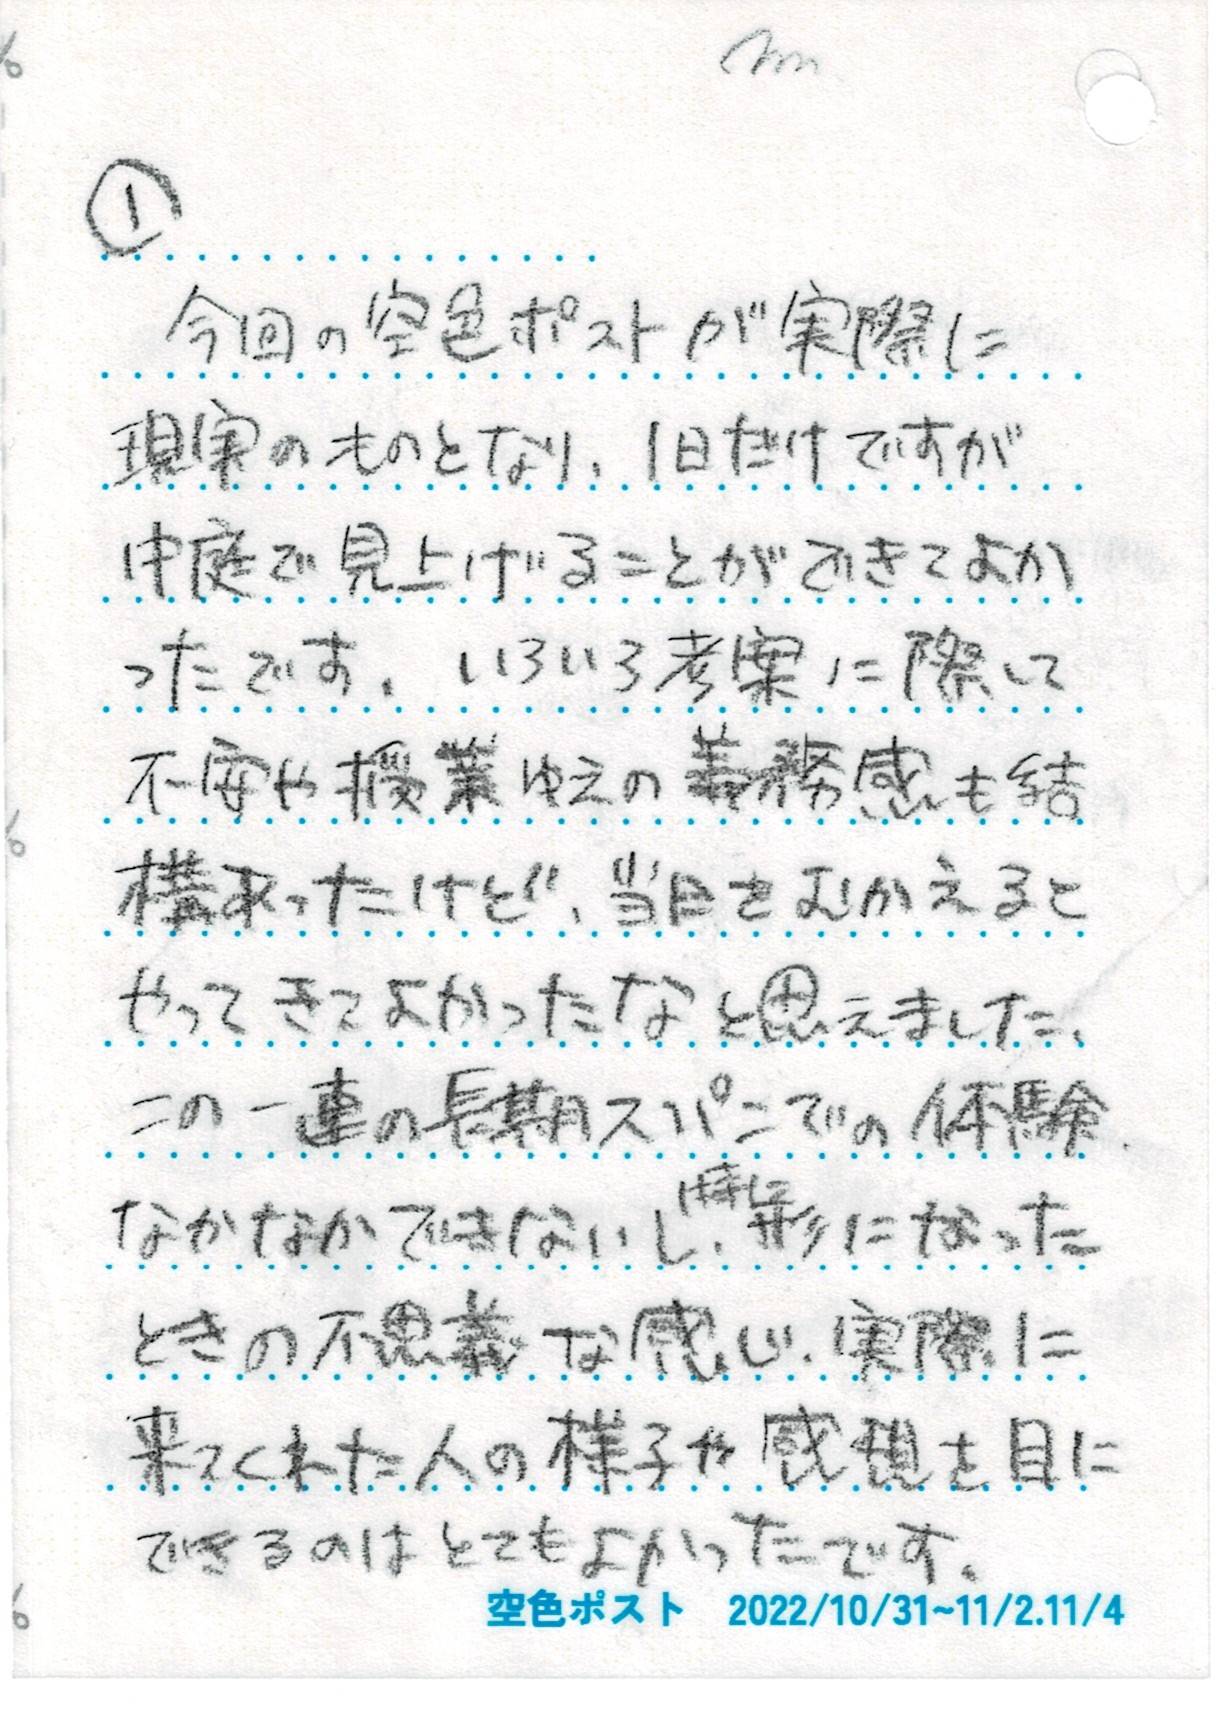 ①
今回の空色ポストが実際に
現実のものとなり、1日だけですが
中庭で見上げることができてよか
ったです。いろいろ考案に際して
不安や授業ゆえの義務感も結
構あったけど、当日をむかえると
やってきてよかったなと思えました、
この一連の長期スパンでの体験
なかなかできないし、形になった
ときの不思義な感じ、実際に
来てくれた人の様子や感想を目に
できるのはとてもよかったです。
空色ポスト 2022/10/31~11/2.11/4